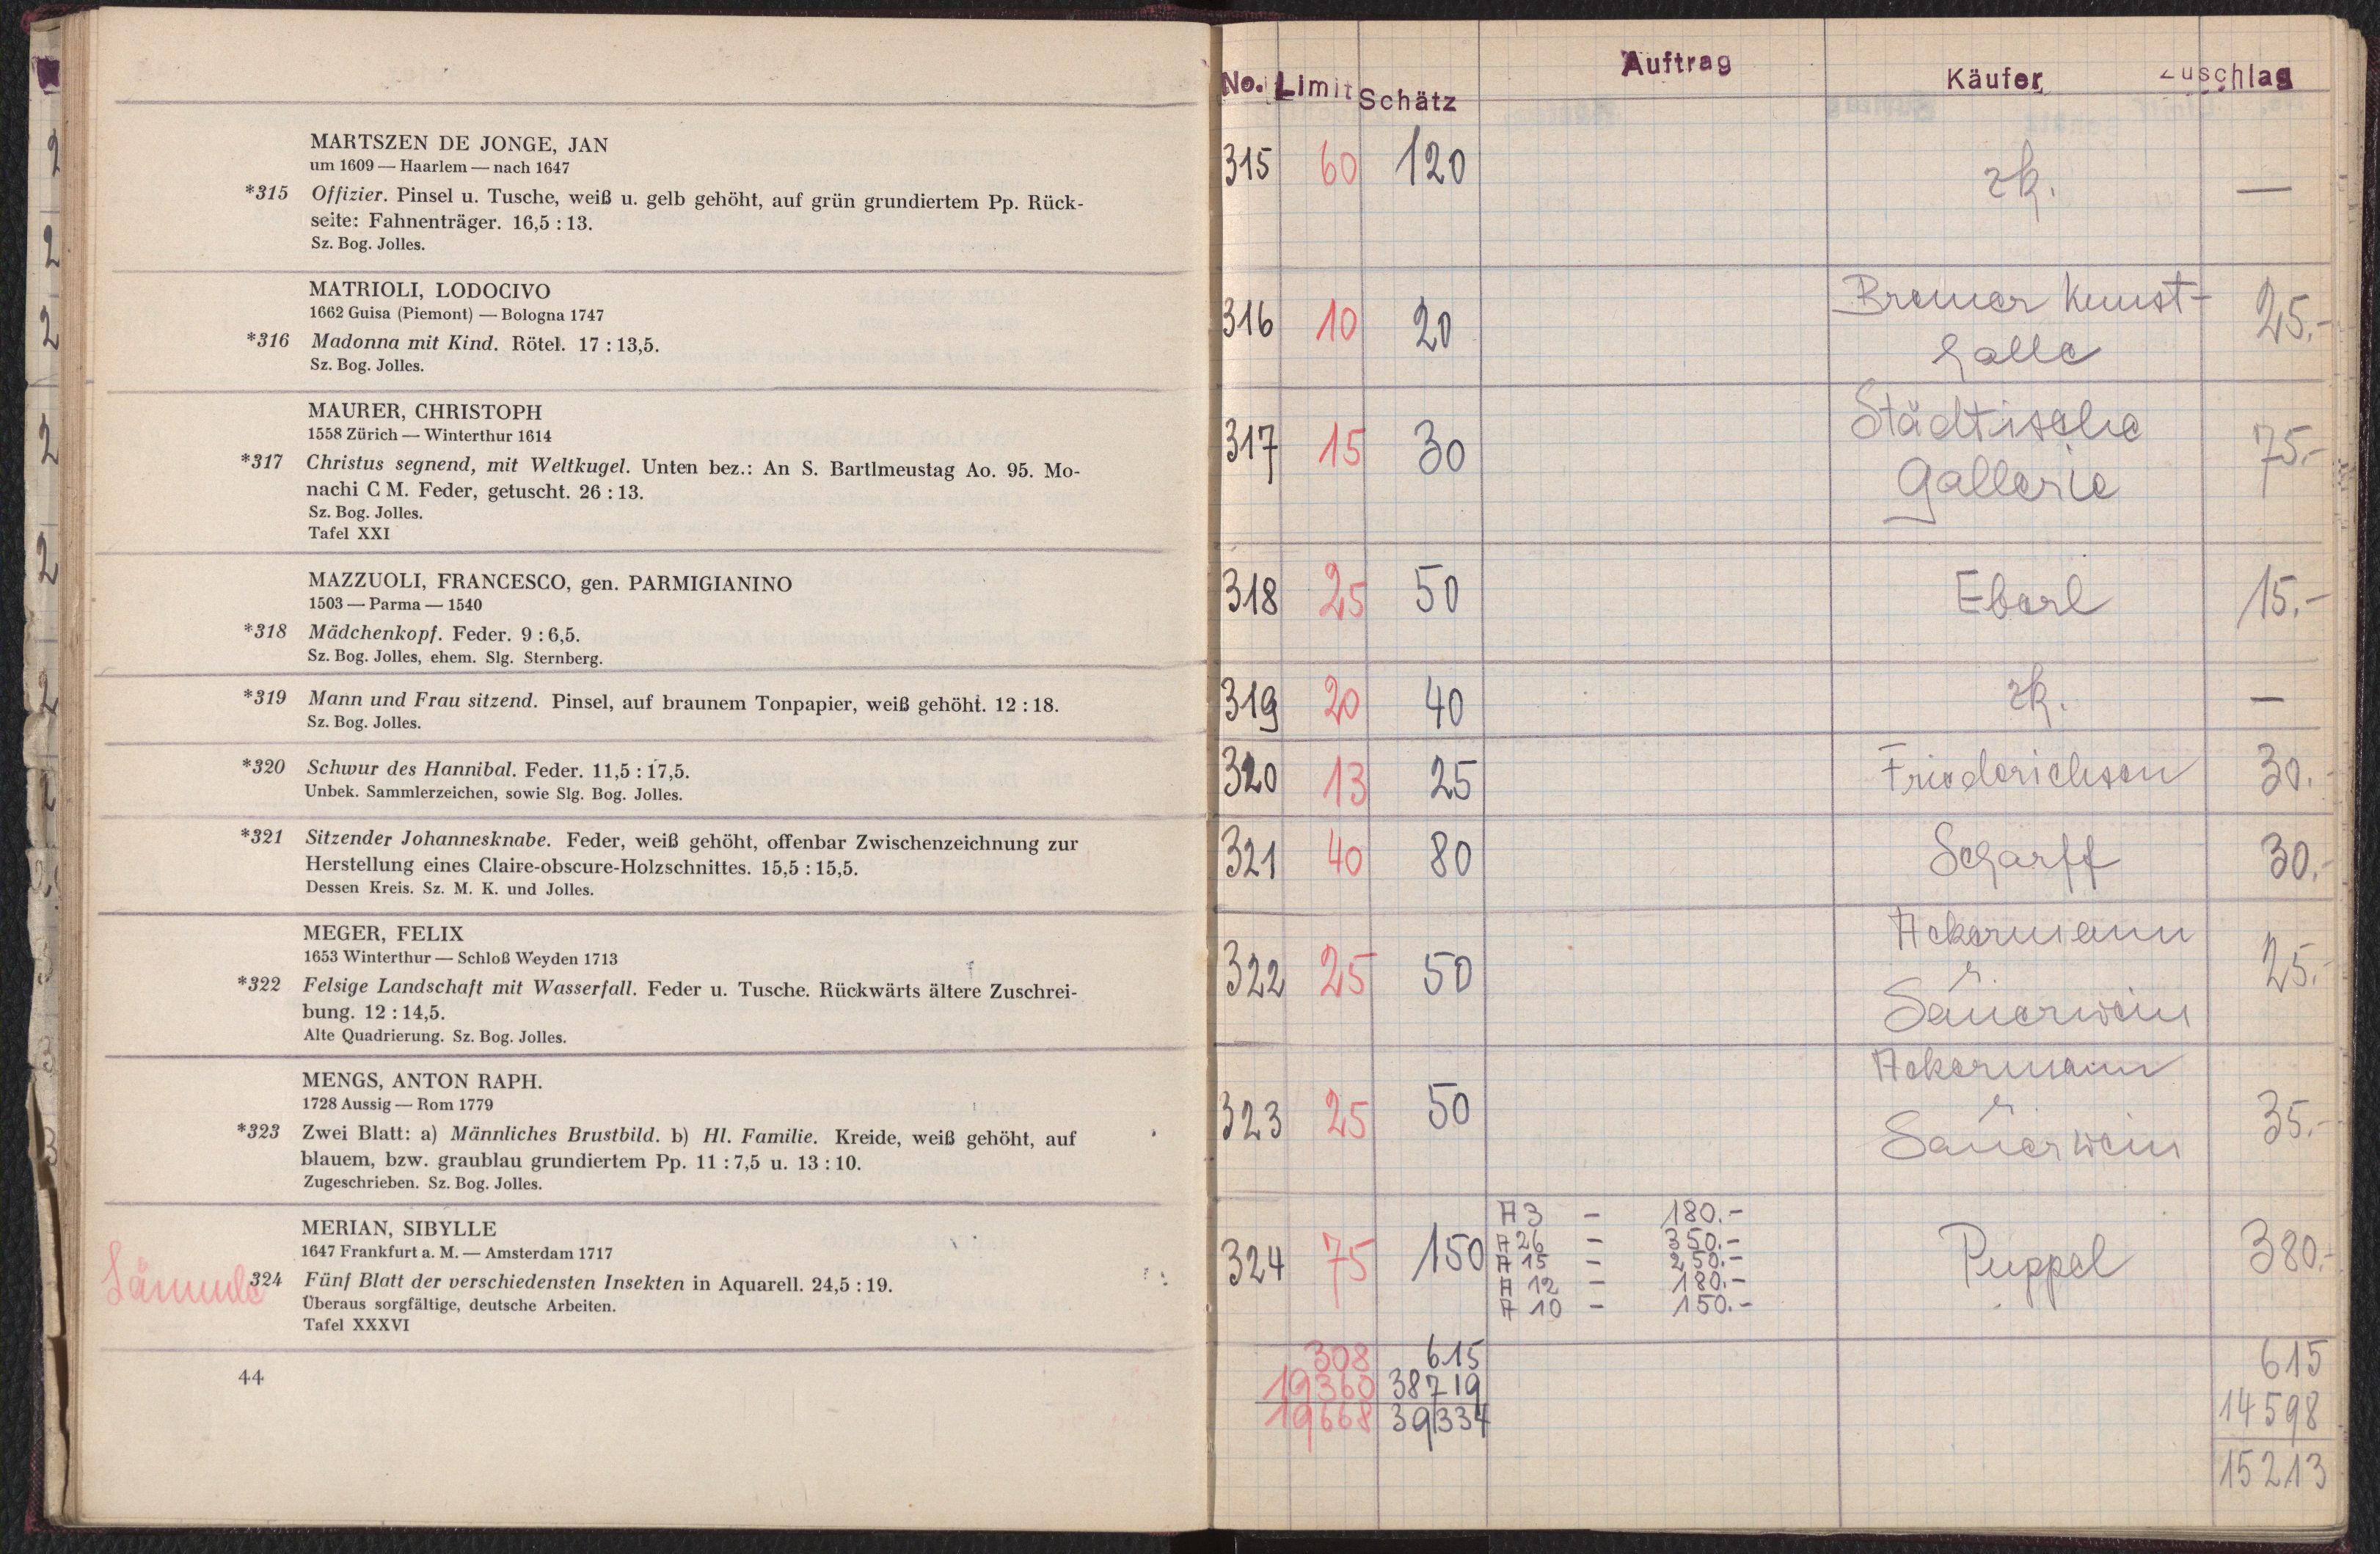 MARTSZEN DE JONGE, JAN
um 1609 — Haarlem — nach 1647
*315 Offizier. Pinsel u. Tusche, weiß u. gelb gehöht, auf grün grundiertem Pp. Rück-
seite: Fahnenträger. 16,5 : 13.
Sz. Bog. Jolles.
MATRIOLI, LODOCIVO
1662 Guisa (Piemont) — Bologna 1747
*316 Madonna mit Kind. Rötel. 17 : 13,5.
Sz. Bog. Jolles.
MAURER, CHRISTOPH
1558 Zürich — Winterthur 1614
*317 Christus segnend, mit Weltkugel. Unten bez.: An S. Bartlmeustag Ao. 95. Mo-
nachi C M. Feder, getuscht. 26 : 13.
Sz. Bog. Jolles.
Tafel XXI
MAZZUOLI, FRANCESCO, gen. PARMIGIANINO
1503 — Parma — 1540
*318 Mädchenkopf. Feder. 9 : 6,5.
Sz. Bog. Jolles, ehem. Slg. Sternberg.
*319 Mann und Frau sitzend. Pinsel, auf braunem Tonpapier, weiß gehöht. 12 : 18.
Sz. Bog. Jolles.
*320 Schwur des Hannibal. Feder. 11,5 : 17,5.
Unbek. Sammlerzeichen, sowie Slg. Bog. Jolles.
*321 Sitzender Johannesknabe. Feder, weiß gehöht, offenbar Zwischenzeichnung zur
Herstellung eines Claire-obscure-Holzschnittes. 15,5 : 15,5.
Dessen Kreis. Sz. M. K. und Jolles.
MEGER, FELIX
1653 Winterthur — Schloß Weyden 1713
*322 Felsige Landschaft mit Wasserfall. Feder u. Tusche. Rückwärts ältere Zuschrei-
bung. 12 : 14,5.
Alte Quadrierung. Sz. Bog. Jolles.
MENGS, ANTON RAPH.
1728 Aussig — Rom 1779
*323 Zwei Blatt: a) Männliches Brustbild. b) Hl. Familie. Kreide, weiß gehöht, auf
blauem, bzw. graublau grundiertem Pp. 11 : 7,5 u. 13 : 10.
Zugeschrieben. Sz. Bog. Jolles.
MERIAN, SIBYLLE
1647 Frankfurt a. M. — Amsterdam 1717
Lämmle 324 Fünf Blatt der verschiedensten Insekten in Aquarell. 24,5 : 19.
Überaus sorgfältige, deutsche Arbeiten.
Tafel XXXVI
44
No. Limit Schätz Auftrag Käufer Zuschlag
315 60 120 zk. —
316 10 20 Bremer Kunst- 25.-
halle
317 15 30 Städtische 75.-
Gallerie
318 25 50 Eberl 15.-
319 20 40 zk. —
320 13 25 Friederichsen 30.-
321 40 80 Scharff 30.-
322 25 50 Ackermann 25.-
Sauerwein
323 25 50 Ackermann 35.-
Sauerwein
324 75 150 Puppel 380.-
A 3 - 180.-
A 26 - 350.-
A 15 - 250.-
A 12 - 180.-
A 10 - 150.-
308 615 615
19360 38719 14598
19668 39334 15213